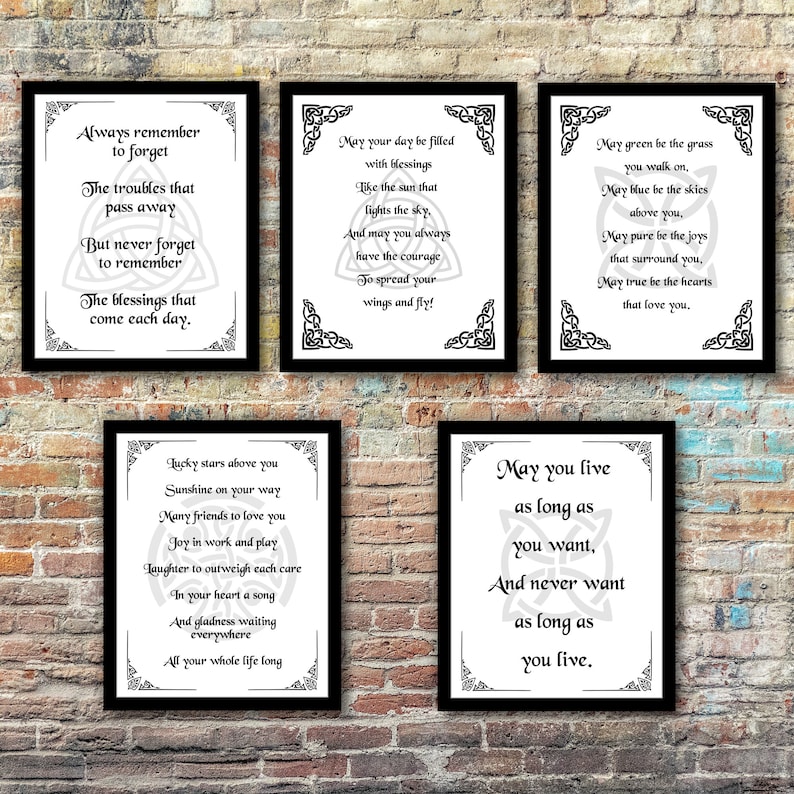 Always remember
to forget
The troubles that
pass away
But never forget
to remember
The blessings that
come each day.
May your day be filled
with blessings
Like the sun that
lights the sky,
And may you always
have the courage
To spread your
wings and fly!
May green be the grass
you walk on,
May blue be the skies
above you,
May pure be the joys
that surround you,
May true be the hearts
that love you.
Lucky stars above you
Sunshine on your way
Many friends to love you
Joy in work and play
Laughter to outweigh each care
In your heart a song
And gladness waiting
everywhere
All your whole life long
May you live
as long as
you want,
And never want
as long as
you live.